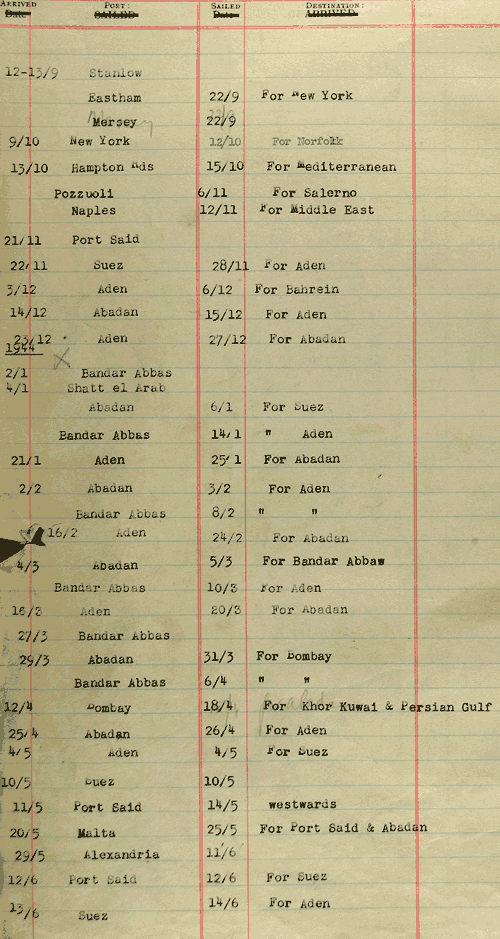 ARRIVED PORT: SAILED DESTINATION:
Date SAILED Date ARRIVED
12-13/9 Stanlow
Eastham 22/9 For New York
Mersey 22/9
9/10 New York 12/10 For Norfolk
13/10 Hampton Rds 15/10 For Mediterranean
Pozzuoli 6/11 For Salerno
Naples 12/11 For Middle East
21/11 Port Said
22/11 Suez 28/11 For Aden
3/12 Aden 6/12 For Bahrein
14/12 Abadan 15/12 For Aden
23/12 Aden 27/12 For Abadan
1944
2/1 Bandar Abbas
4/1 Shatt el Arab
Abadan 6/1 For Suez
Bandar Abbas 14/1 " Aden
21/1 Aden 25/1 For Abadan
2/2 Abadan 3/2 For Aden
Bandar Abbas 8/2 " "
16/2 Aden 24/2 For Abadan
4/3 Abadan 5/3 For Bandar Abbaw
Bandar Abbas 10/3 For Aden
16/3 Aden 20/3 For Abadan
27/3 Bandar Abbas
29/3 Abadan 31/3 For Bombay
Bandar Abbas 6/4 " "
12/4 Bombay 18/4 For Khor Kuwai & Persian Gulf
25/4 Abadan 26/4 For Aden
4/5 Aden 4/5 For Suez
10/5 Suez 10/5
11/5 Port Said 14/5 westwards
20/5 Malta 25/5 For Port Said & Abadan
29/5 Alexandria 11/6
12/6 Port Said 12/6 For Suez
13/6 Suez 14/6 For Aden